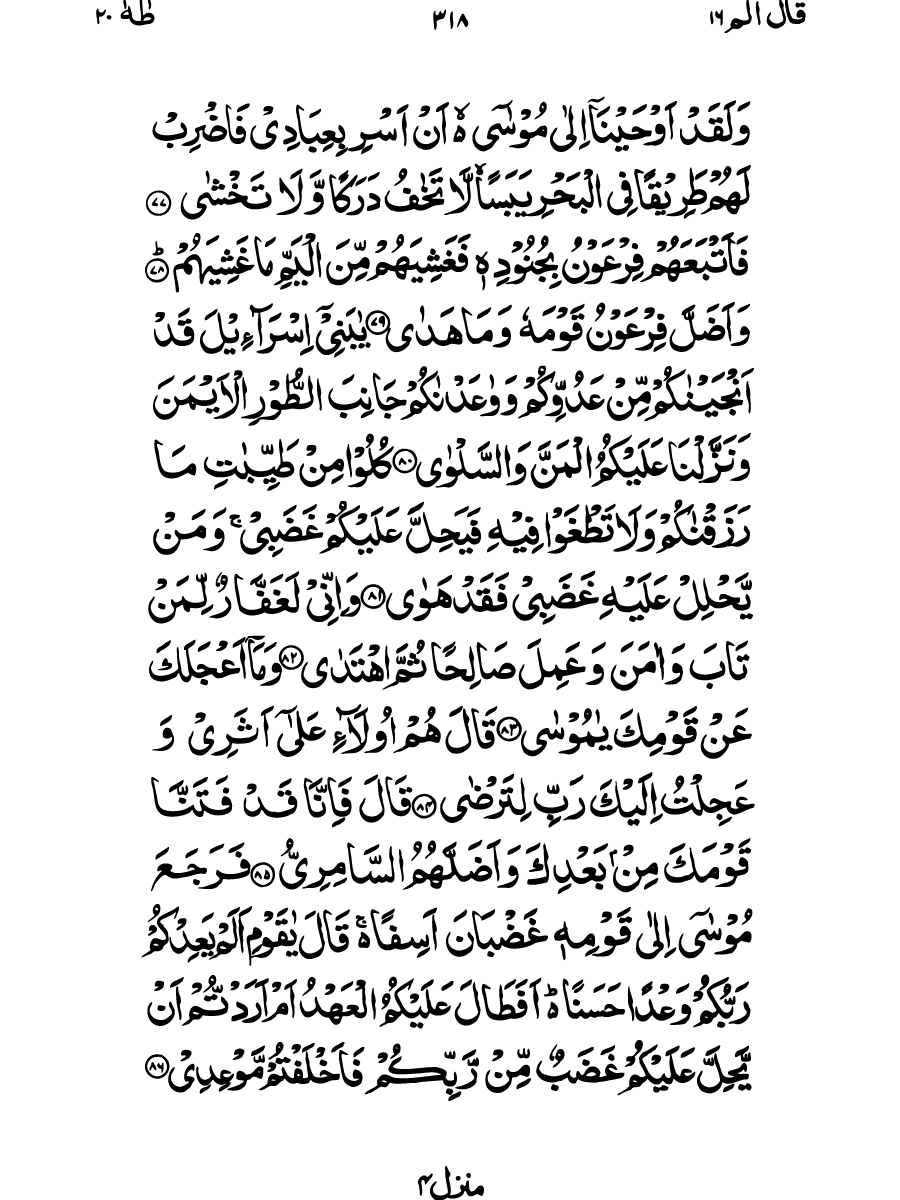 قال الم ١٦ ٣١٨ طٰهٰ ٢٠
وَلَقَدْ اَوْحَيْنَاۤ اِلٰى مُوْسٰۤى ۙ۬ اَنْ اَسْرِ بِعِبَادِىْ فَاضْرِبْ
لَهُمْ طَرِيْقًا فِى الْبَحْرِ يَبَسًا ۙ لَّا تَخٰفُ دَرَكًا وَّ لَا تَخْشٰى ﴿٧٧﴾
فَاَتْبَعَهُمْ فِرْعَوْنُ بِجُنُوْدِهٖ فَغَشِيَهُمْ مِّنَ الْيَمِّ مَا غَشِيَهُمْ ؕ ﴿٧٨﴾
وَاَضَلَّ فِرْعَوْنُ قَوْمَهٗ وَمَا هَدٰى ﴿٧٩﴾ يٰبَنِىْۤ اِسْرَآءِيْلَ قَدْ
اَنْجَيْنٰكُمْ مِّنْ عَدُوِّكُمْ وَوٰعَدْنٰكُمْ جَانِبَ الطُّوْرِ الْاَيْمَنَ
وَنَزَّلْنَا عَلَيْكُمُ الْمَنَّ وَالسَّلْوٰى ﴿٨٠﴾ كُلُوْا مِنْ طَيِّبٰتِ مَا
رَزَقْنٰكُمْ وَلَا تَطْغَوْا فِيْهِ فَيَحِلَّ عَلَيْكُمْ غَضَبِىْ ۚ وَمَنْ
يَّحْلِلْ عَلَيْهِ غَضَبِىْ فَقَدْ هَوٰى ﴿٨١﴾ وَاِنِّىْ لَغَفَّارٌ لِّمَنْ
تَابَ وَاٰمَنَ وَعَمِلَ صَالِحًا ثُمَّ اهْتَدٰى ﴿٨٢﴾ وَمَاۤ اَعْجَلَكَ
عَنْ قَوْمِكَ يٰمُوْسٰى ﴿٨٣﴾ قَالَ هُمْ اُولَآءِ عَلٰٓى اَثَرِىْ وَ
عَجِلْتُ اِلَيْكَ رَبِّ لِتَرْضٰى ﴿٨٤﴾ قَالَ فَاِنَّا قَدْ فَتَنَّا
قَوْمَكَ مِنْۢ بَعْدِكَ وَاَضَلَّهُمُ السَّامِرِىُّ ﴿٨٥﴾ فَرَجَعَ
مُوْسٰۤى اِلٰى قَوْمِهٖ غَضْبَانَ اَسِفًا ۬ۚ قَالَ يٰقَوْمِ اَلَمْ يَعِدْكُمْ
رَبُّكُمْ وَعْدًا حَسَنًا ؕ۬ اَفَطَالَ عَلَيْكُمُ الْعَهْدُ اَمْ اَرَدْتُّمْ اَنْ
يَّحِلَّ عَلَيْكُمْ غَضَبٌ مِّنْ رَّبِّكُمْ فَاَخْلَفْتُمْ مَّوْعِدِىْ ﴿٨٦﴾
منزل ٤